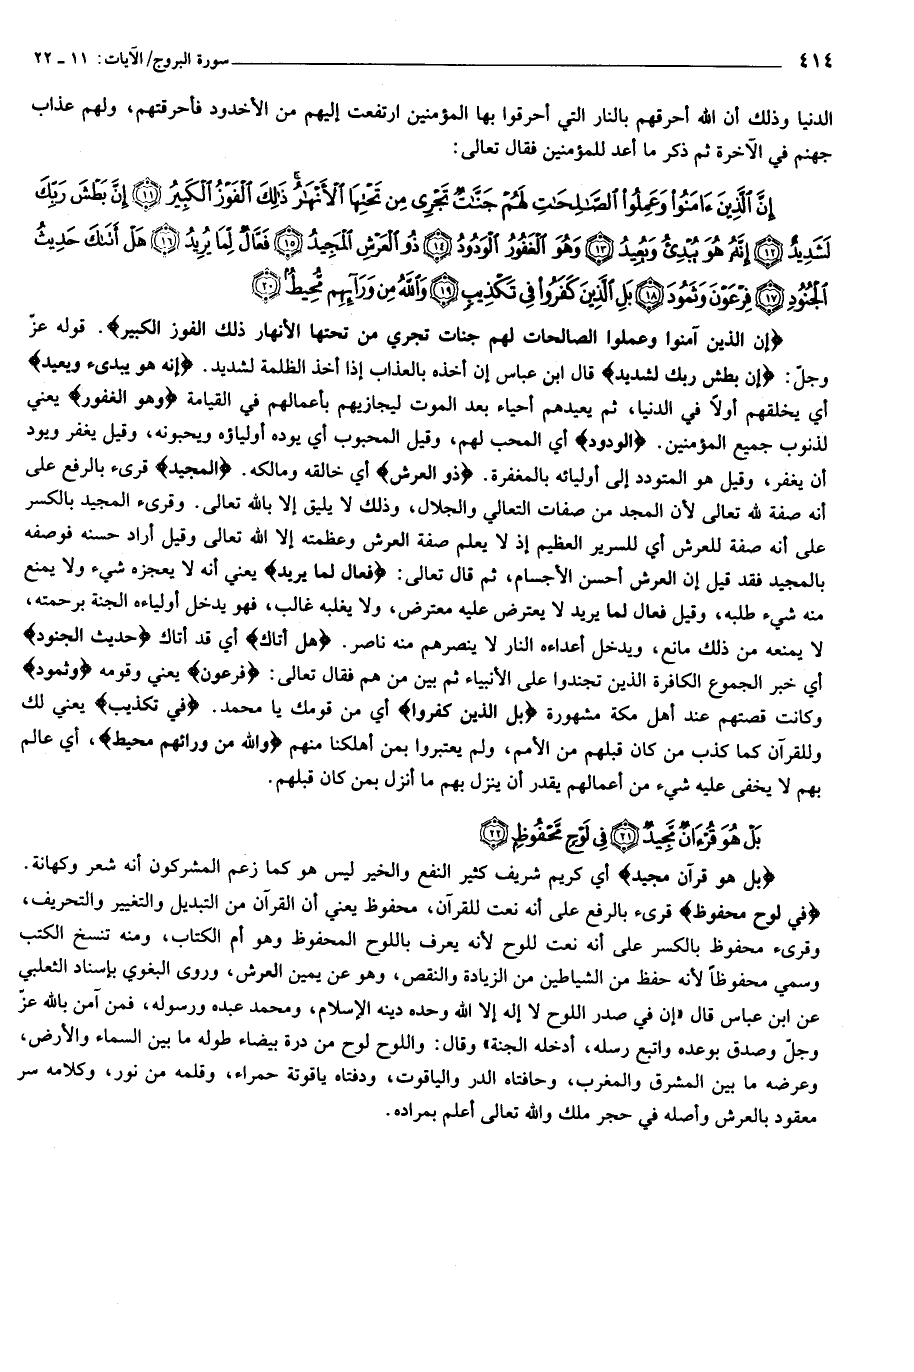 ٤١٤ سورة البروج/ الآيات: ١١ ـ ٢٢
الدنيا وذلك أن الله أحرقهم بالنار التي أحرقوا بها المؤمنين ارتفعت إليهم من الأخدود فأحرقتهم، ولهم عذاب
جهنم في الآخرة ثم ذكر ما أعد للمؤمنين فقال تعالى:
إِنَّ ٱلَّذِينَ ءَامَنُوا۟ وَعَمِلُوا۟ ٱلصَّـٰلِحَـٰتِ لَهُمْ جَنَّـٰتٌ تَجْرِى مِن تَحْتِهَا ٱلْأَنْهَـٰرُ ۚ ذَٰلِكَ ٱلْفَوْزُ ٱلْكَبِيرُ ﴿١١﴾ إِنَّ بَطْشَ رَبِّكَ
لَشَدِيدٌ ﴿١٢﴾ إِنَّهُۥ هُوَ يُبْدِئُ وَيُعِيدُ ﴿١٣﴾ وَهُوَ ٱلْغَفُورُ ٱلْوَدُودُ ﴿١٤﴾ ذُو ٱلْعَرْشِ ٱلْمَجِيدُ ﴿١٥﴾ فَعَّالٌ لِّمَا يُرِيدُ ﴿١٦﴾ هَلْ أَتَىٰكَ حَدِيثُ
ٱلْجُنُودِ ﴿١٧﴾ فِرْعَوْنَ وَثَمُودَ ﴿١٨﴾ بَلِ ٱلَّذِينَ كَفَرُوا۟ فِى تَكْذِيبٍ ﴿١٩﴾ وَٱللَّهُ مِن وَرَآئِهِم مُّحِيطٌۢ ﴿٢٠﴾
﴿إن الذين آمنوا وعملوا الصالحات لهم جنات تجري من تحتها الأنهار ذلك الفوز الكبير﴾. قوله عزّ
وجلّ: ﴿إن بطش ربك لشديد﴾ قال ابن عباس إن أخذه بالعذاب إذا أخذ الظلمة لشديد. ﴿إنه هو يبدىء ويعيد﴾
أي يخلقهم أولاً في الدنيا، ثم يعيدهم أحياء بعد الموت ليجازيهم بأعمالهم في القيامة ﴿وهو الغفور﴾ يعني
لذنوب جميع المؤمنين. ﴿الودود﴾ أي المحب لهم، وقيل المحبوب أي يوده أولياؤه ويحبونه، وقيل يغفر ويود
أن يغفر، وقيل هو المتودد إلى أوليائه بالمغفرة. ﴿ذو العرش﴾ أي خالقه ومالكه. ﴿المجيد﴾ قرىء بالرفع على
أنه صفة لله تعالى لأن المجد من صفات التعالي والجلال، وذلك لا يليق إلا بالله تعالى. وقرىء المجيد بالكسر
على أنه صفة للعرش أي للسرير العظيم إذ لا يعلم صفة العرش وعظمته إلا الله تعالى وقيل أراد حسنه فوصفه
بالمجيد فقد قيل إن العرش أحسن الأجسام، ثم قال تعالى: ﴿فعال لما يريد﴾ يعني أنه لا يعجزه شيء ولا يمنع
منه شيء طلبه، وقيل فعال لما يريد لا يعترض عليه معترض، ولا يغلبه غالب، فهو يدخل أولياءه الجنة برحمته،
لا يمنعه من ذلك مانع، ويدخل أعداءه النار لا ينصرهم منه ناصر. ﴿هل أتاك﴾ أي قد أتاك ﴿حديث الجنود﴾
أي خبر الجموع الكافرة الذين تجندوا على الأنبياء ثم بين من هم فقال تعالى: ﴿فرعون﴾ يعني وقومه ﴿وثمود﴾
وكانت قصتهم عند أهل مكة مشهورة ﴿بل الذين كفروا﴾ أي من قومك يا محمد. ﴿في تكذيب﴾ يعني لك
وللقرآن كما كذب من كان قبلهم من الأمم، ولم يعتبروا بمن أهلكنا منهم ﴿والله من ورائهم محيط﴾، أي عالم
بهم لا يخفى عليه شيء من أعمالهم يقدر أن ينزل بهم ما أنزل بمن كان قبلهم.
بَلْ هُوَ قُرْءَانٌ مَّجِيدٌ ﴿٢١﴾ فِى لَوْحٍ مَّحْفُوظٍۭ ﴿٢٢﴾
﴿بل هو قرآن مجيد﴾ أي كريم شريف كثير النفع والخير ليس هو كما زعم المشركون أنه شعر وكهانة.
﴿في لوح محفوظ﴾ قرىء بالرفع على أنه نعت للقرآن، محفوظ يعني أن القرآن من التبديل والتغيير والتحريف،
وقرىء محفوظ بالكسر على أنه نعت للوح لأنه يعرف باللوح المحفوظ وهو أم الكتاب، ومنه تنسخ الكتب
وسمي محفوظاً لأنه حفظ من الشياطين من الزيادة والنقص، وهو عن يمين العرش، وروى البغوي بإسناد الثعلبي
عن ابن عباس قال «إن في صدر اللوح لا إله إلا الله وحده دينه الإسلام، ومحمد عبده ورسوله، فمن آمن بالله عزّ
وجلّ وصدق بوعده واتبع رسله، أدخله الجنة» وقال: واللوح لوح من درة بيضاء طوله ما بين السماء والأرض،
وعرضه ما بين المشرق والمغرب، وحافتاه الدر والياقوت، ودفتاه ياقوتة حمراء، وقلمه من نور، وكلامه سر
معقود بالعرش وأصله في حجر ملك والله تعالى أعلم بمراده.